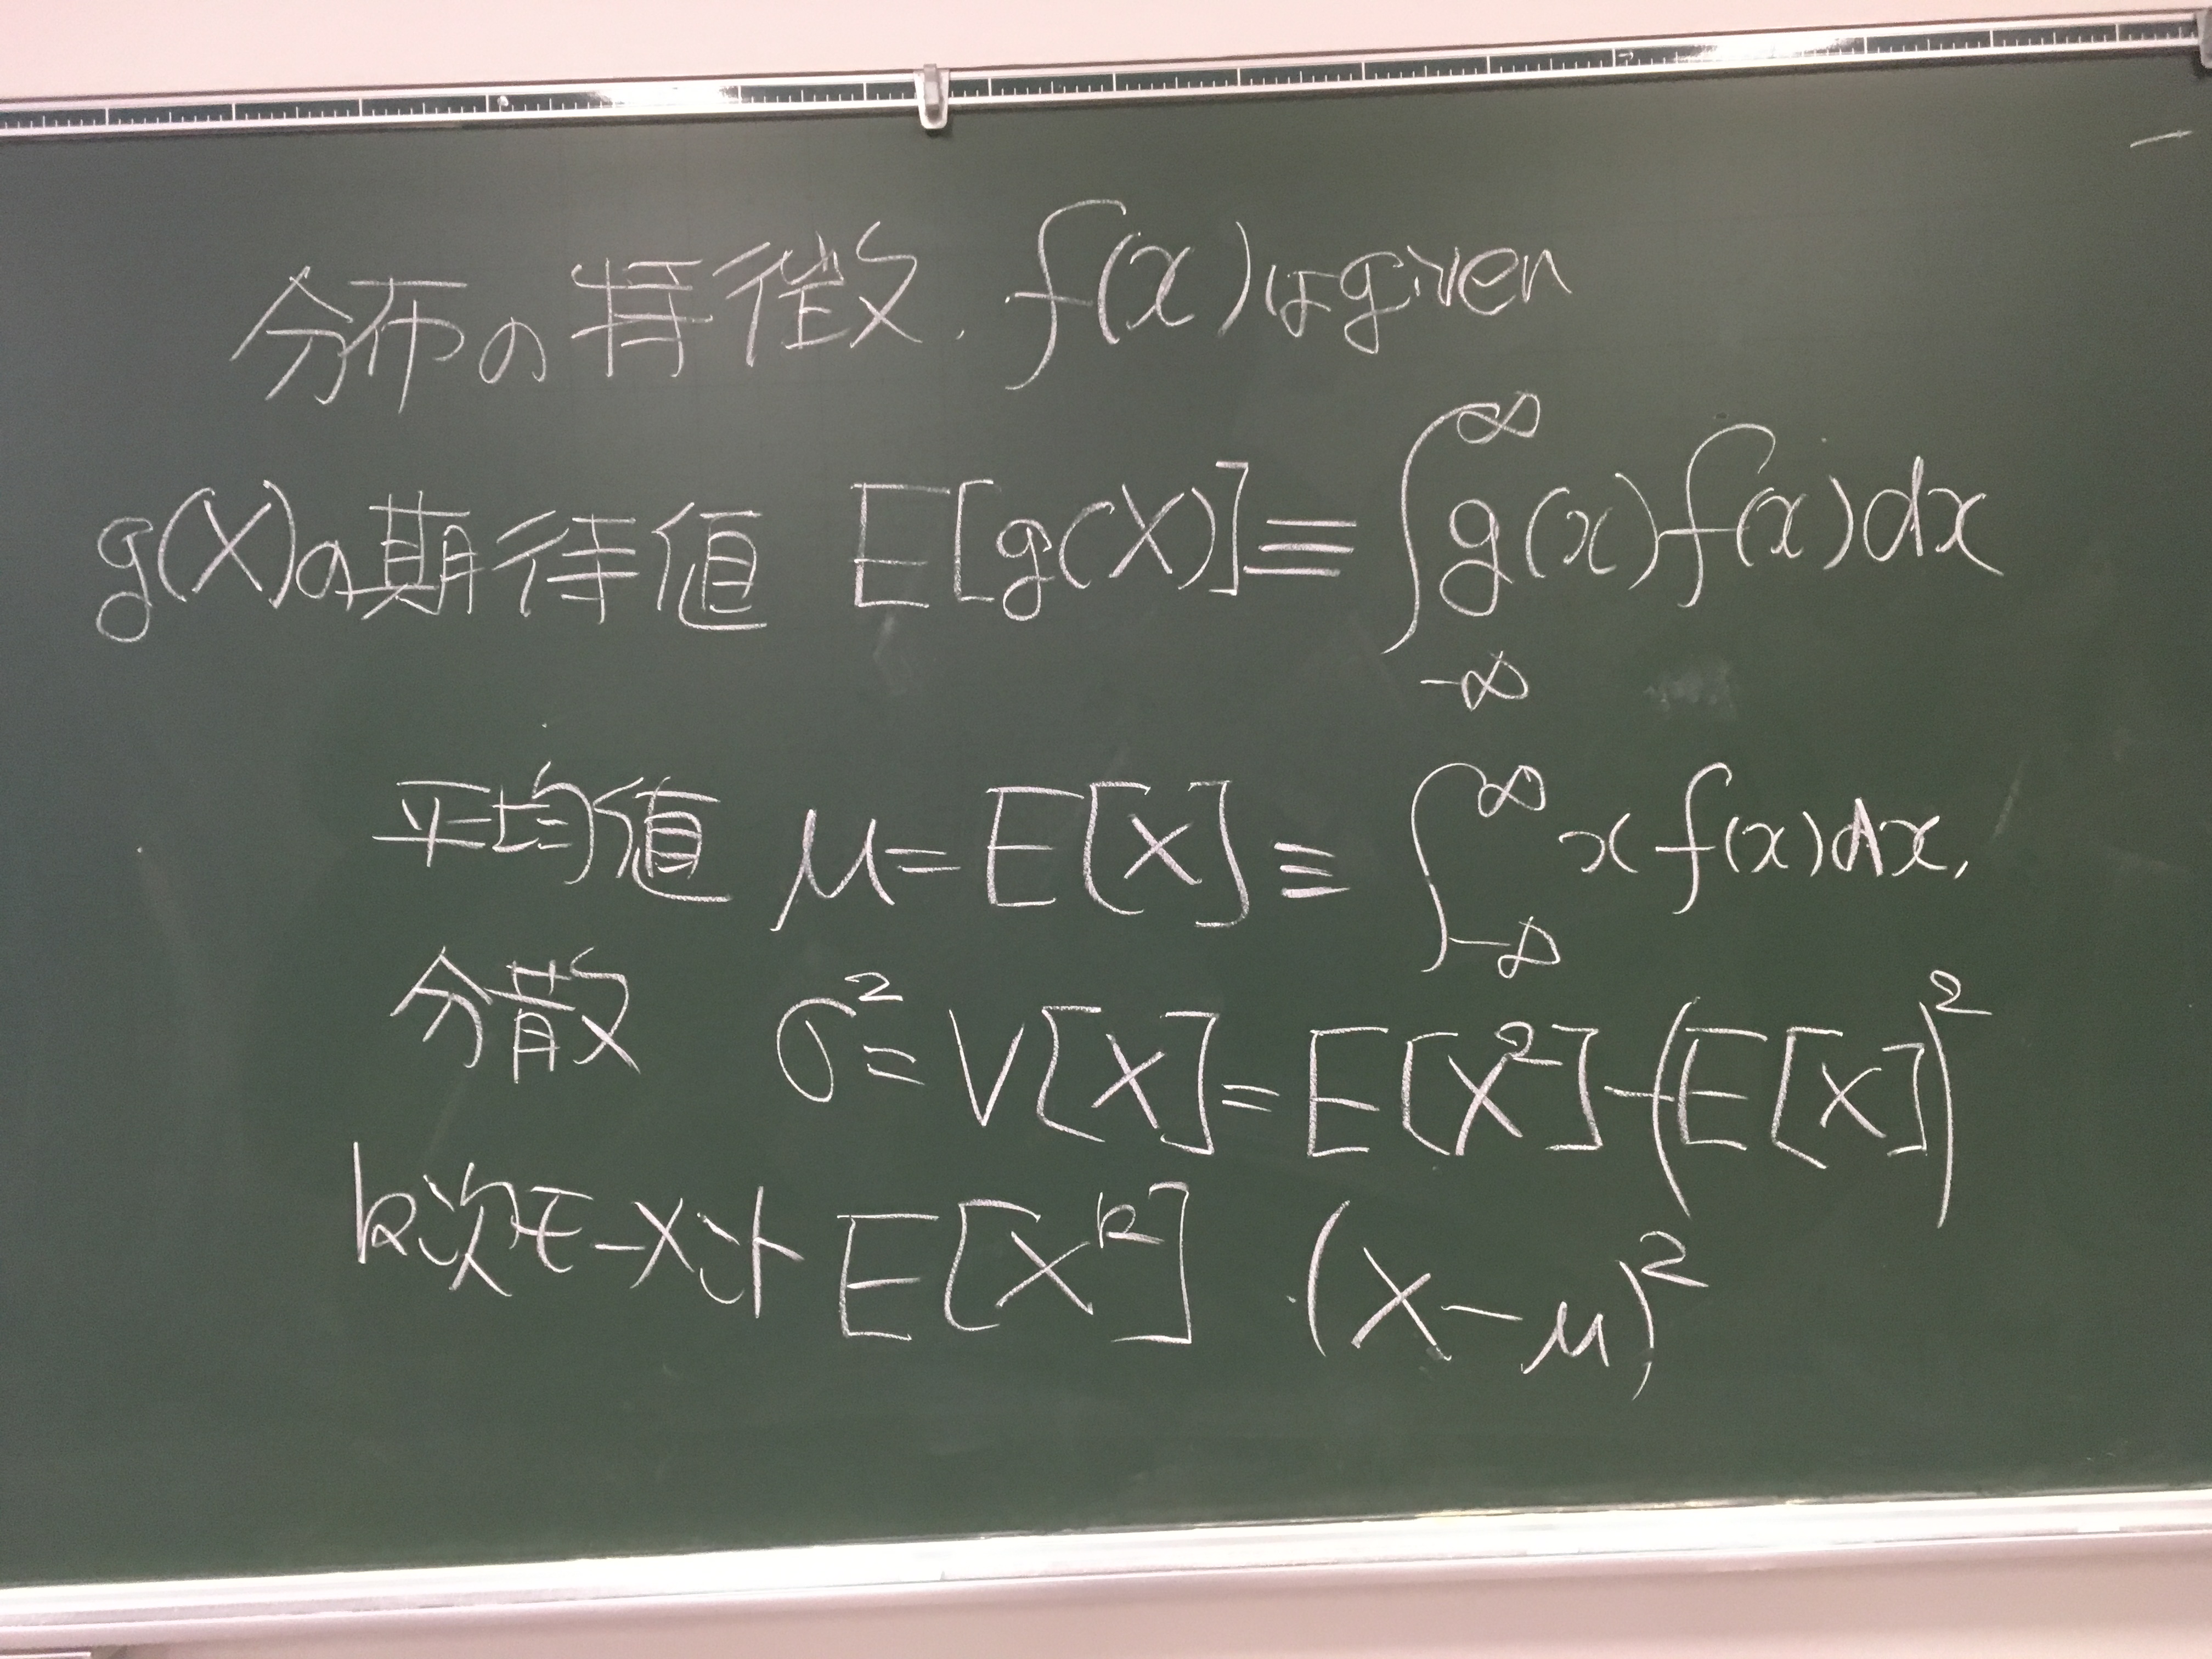 分布の特徴. f(x)は given
g(X)の期待値 E[g(X)]≡∫_{-∞}^{∞} g(x)f(x)dx
平均値 μ=E[X]≡∫_{-∞}^{∞} x f(x)dx,
分散 σ²=V[X]=E[X²]-(E[X])²
k次モーメント E[X^k] (X-μ)²